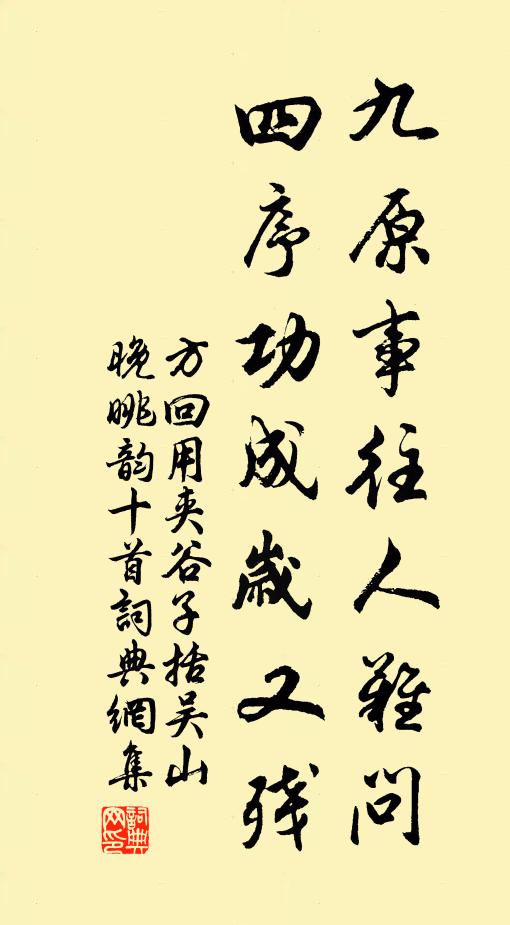 九原事往人難问
四序功成歲又残
方回用夹谷子括吴山
晚眺韵十首詞典網集
詞典网印